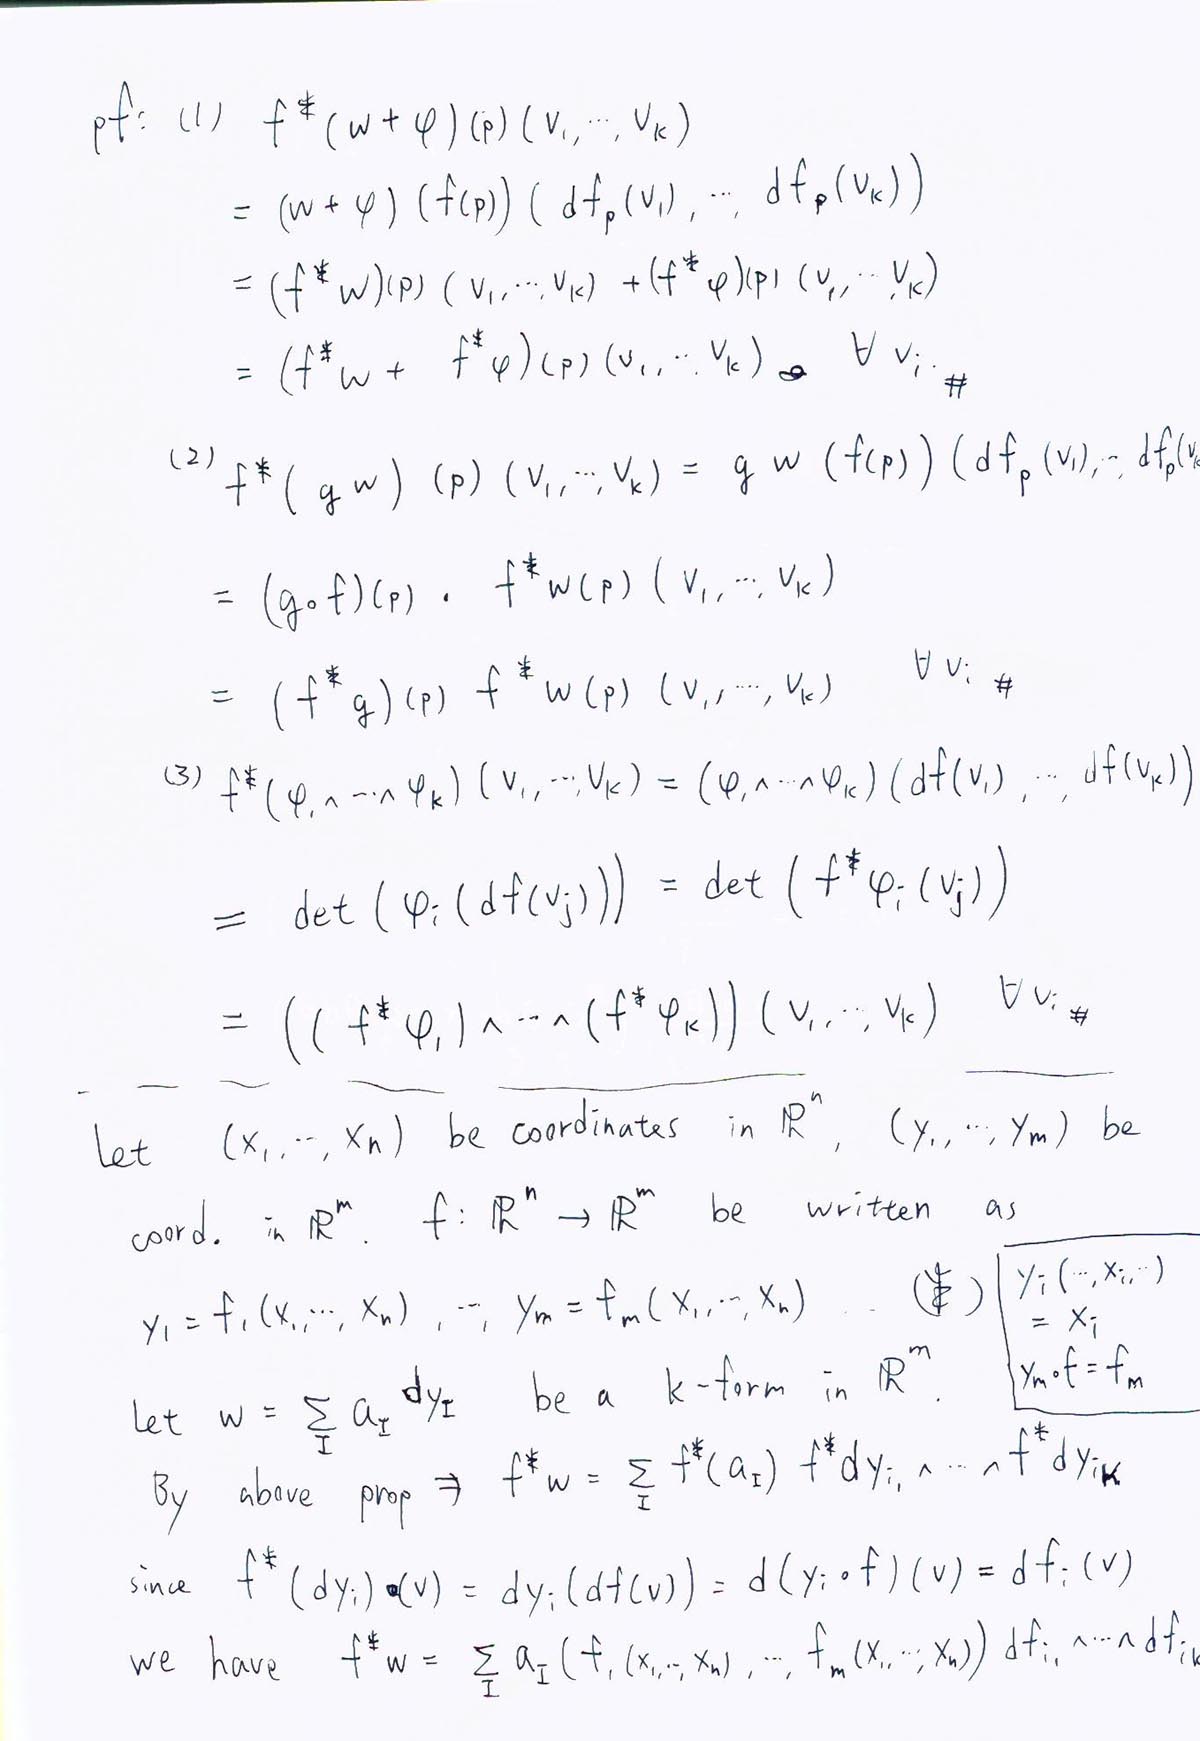 pf: (1) f*(w+φ)(p)(v₁,…,v_k)
= (w+φ)(f(p))(df_p(v₁),…,df_p(v_k))
= (f*w)(p)(v₁,…,v_k) + (f*φ)(p)(v₁,…,v_k)
= (f*w + f*φ)(p)(v₁,…,v_k) ∀ v_i. #
(2) f*(g w)(p)(v₁,…,v_k) = g w(f(p))(df_p(v₁),…,df_p(v_k
= (g∘f)(p) · f*w(p)(v₁,…,v_k)
= (f*g)(p) f*w(p)(v₁,…,v_k) ∀ v_i #
(3) f*(φ₁∧…∧φ_k)(v₁,…,v_k) = (φ₁∧…∧φ_k)(df(v₁),…,df(v_k))
= det(φ_i(df(v_j))) = det(f*φ_i(v_j))
= ((f*φ₁)∧…∧(f*φ_k))(v₁,…,v_k) ∀ v_i #
Let (x₁,…,x_n) be coordinates in ℝⁿ, (y₁,…,y_m) be
coord. in ℝᵐ. f: ℝⁿ → ℝᵐ be written as
y₁ = f₁(x₁,…,x_n),…, y_m = f_m(x₁,…,x_n) … (*)
y_i(…,x_i,…)
= x_i
y_m∘f = f_m
Let w = Σ_I a_I dy_I be a k-form in ℝᵐ.
By above prop ⇒ f*w = Σ_I f*(a_I) f*dy_{i₁}∧…∧f*dy_{i_k}
since f*(dy_i)(v) = dy_i(df(v)) = d(y_i∘f)(v) = df_i(v)
we have f*w = Σ_I a_I(f₁(x₁,…,x_n),…,f_m(x₁,…,x_n)) df_{i₁}∧…∧df_{i_k}